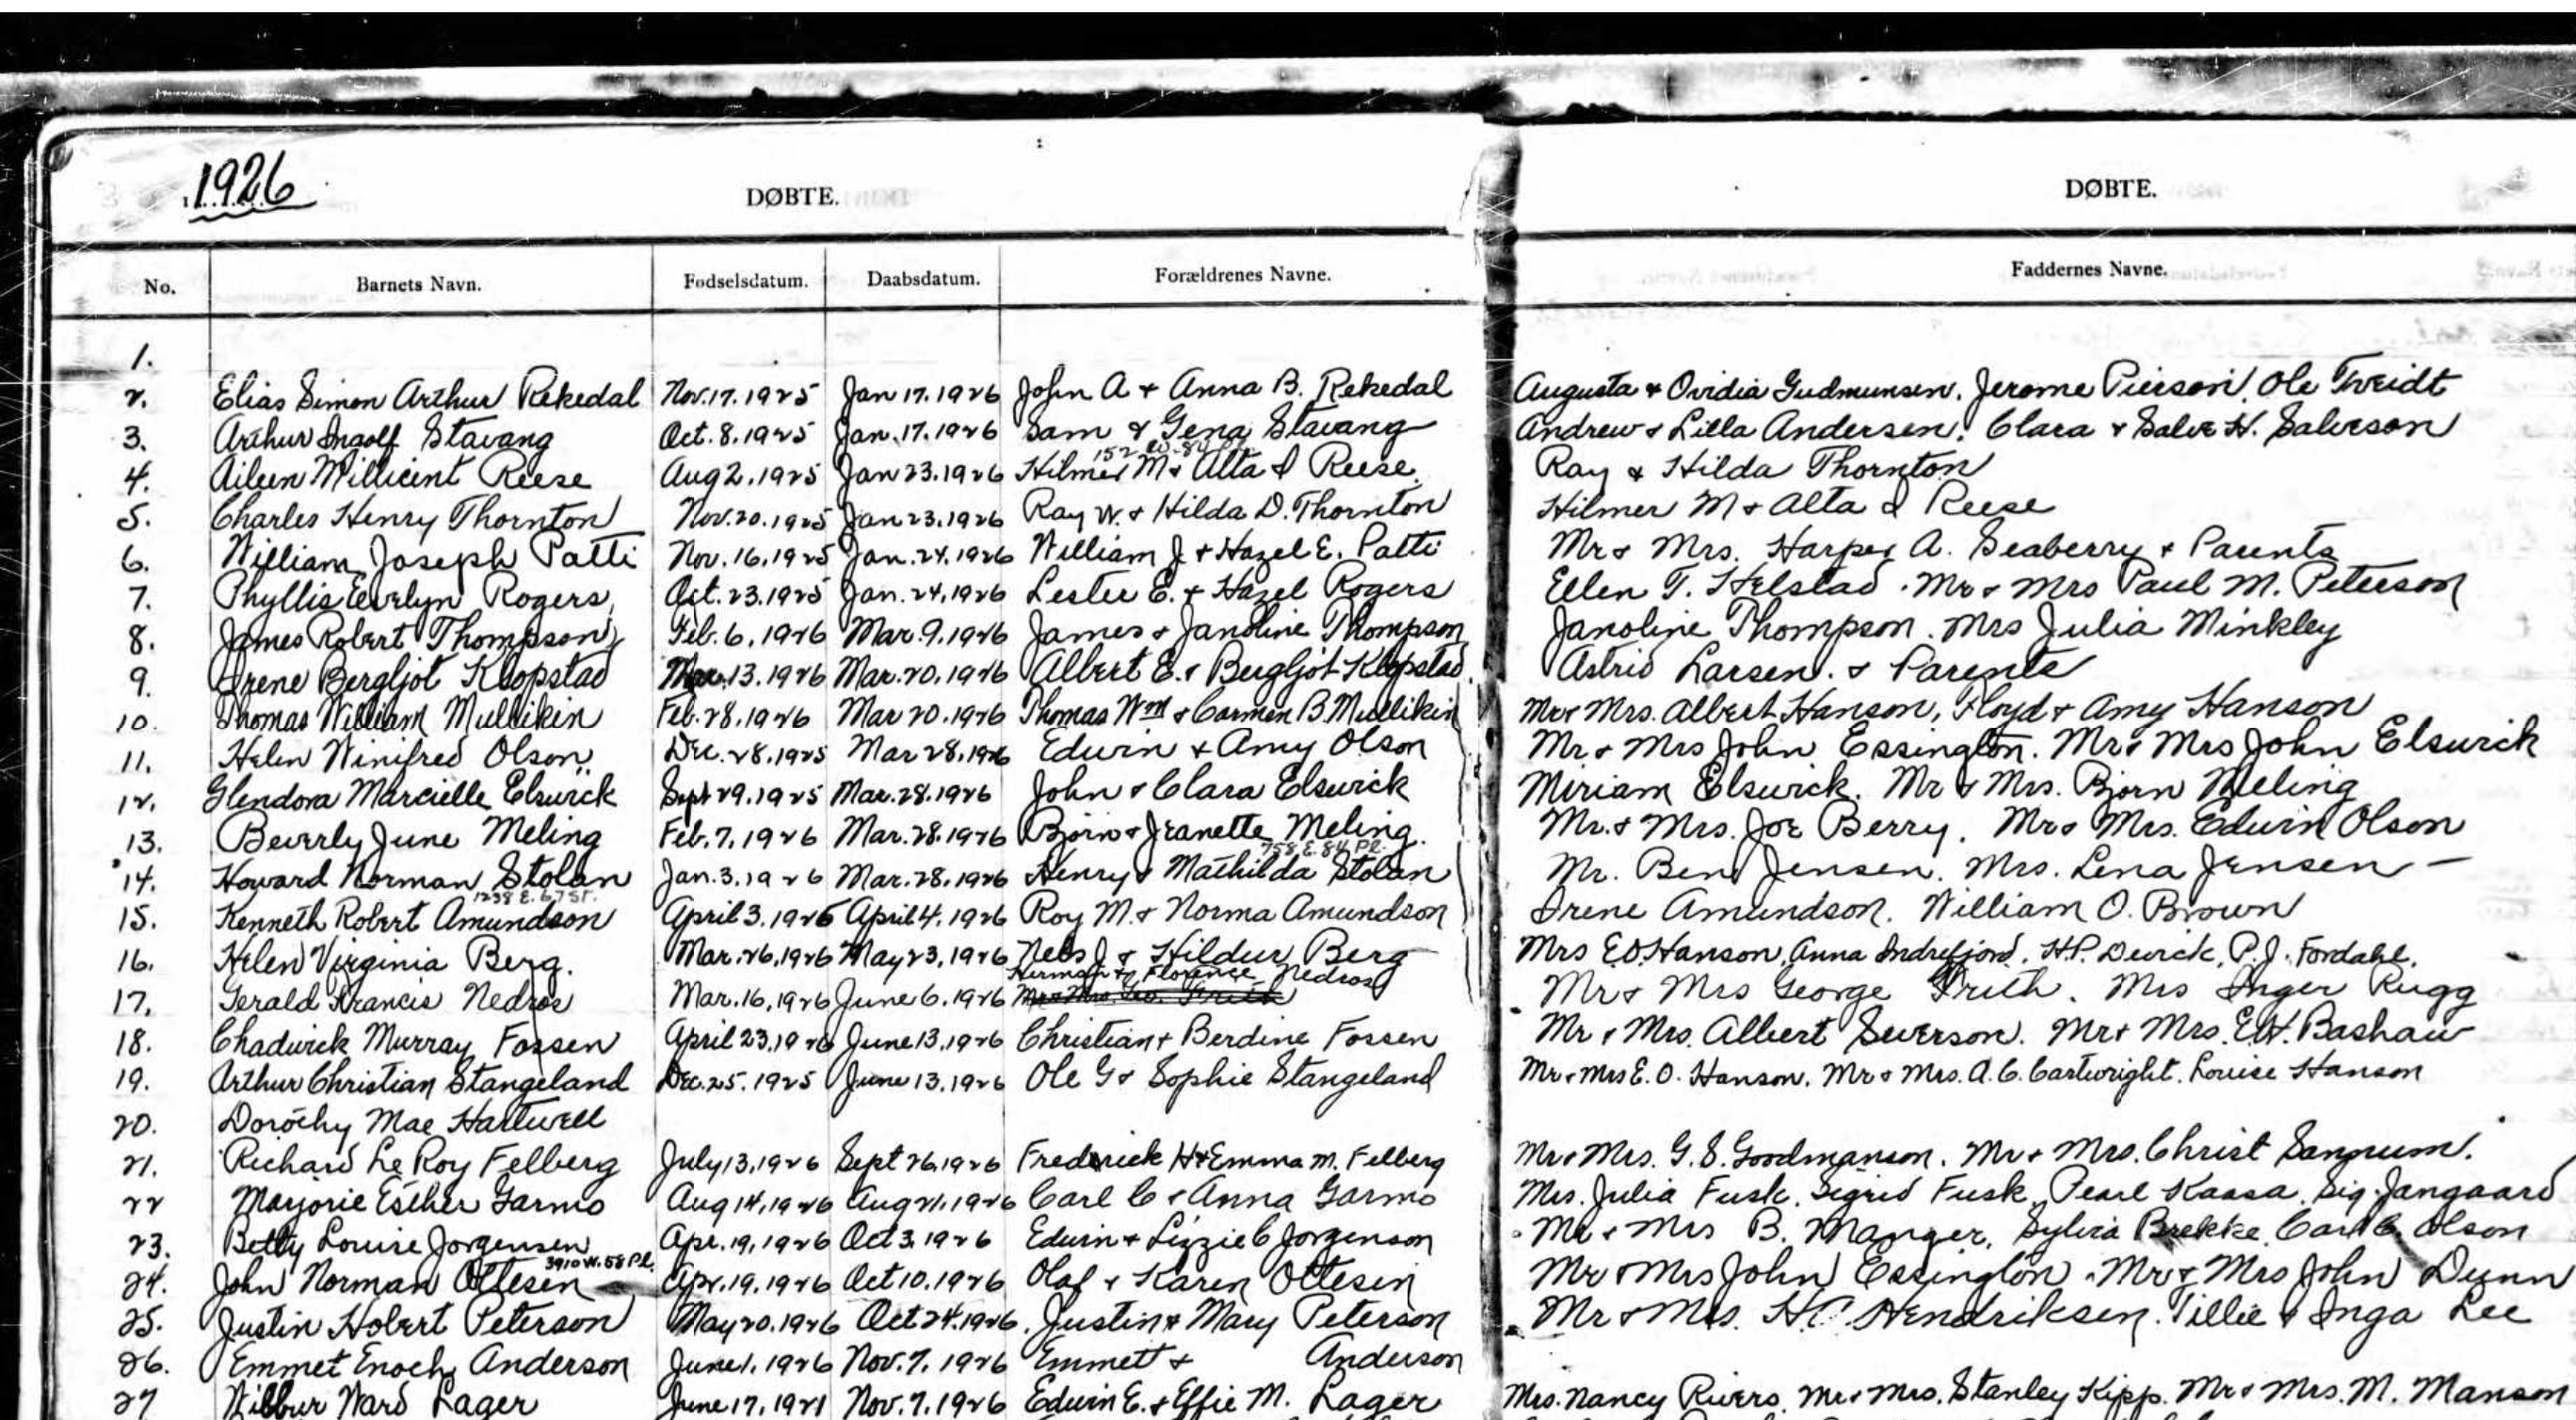 1926
DØBTE.
DØBTE.
No. Barnets Navn. Fødselsdatum. Daabsdatum. Forældrenes Navne. Faddernes Navne.
1.
2. Elias Simon Arthur Rekedal Nov. 17. 1925 Jan 17. 1926 John A + Anna B. Rekedal Augusta + Ovidia Gudmunsen, Jerome Pierson, Ole Tveidt
3. Arthur Ingolf Stavang Oct. 8. 1925 Jan. 17. 1926 Sam & Gena Stavang Andrew + Lilla Andersen. Clara + Salve H. Salveson
152 W. 84 Pl
4. Aileen Millicent Reese Aug 2. 1925 Jan 23. 1926 Hilmer M + Alta I Reese. Ray & Hilda Thornton
5. Charles Henry Thornton Nov. 20. 1925 Jan 23. 1926 Ray W. + Hilda D. Thornton Hilmer M + Alta I Reese
6. William Joseph Patti Nov. 16. 1925 Jan. 24. 1926 William J + Hazel E. Patti Mr + Mrs. Harper A. Seaberry + Parents
7. Phyllis Evelyn Rogers Oct. 23. 1925 Jan. 24. 1926 Lester E. + Hazel Rogers Ellen T. Helstad. Mr + Mrs Paul M. Peterson
8. James Robert Thompson Feb. 6. 1926 Mar. 9. 1926 James + Janoline Thompson Janoline Thompson. Mrs Julia Minkley
9. Irene Bergljot Klopstad Mar. 13. 1926 Mar. 20. 1926 Albert E. + Bergljot Klopstad Astrid Larsen. & Parents
10. Thomas William Mullikin Feb. 28. 1926 Mar 20. 1926 Thomas Wm + Carmen B. Mullikin Mr + Mrs. Albert Hanson, Floyd + Amy Hanson
11. Helen Winifred Olson Dec. 28. 1925 Mar 28. 1926 Edwin + Amy Olson Mr + Mrs John Essington. Mr + Mrs John Elswick
12. Glendora Marcielle Elswick Sept 29. 1925 Mar. 28. 1926 John + Clara Elswick Miriam Elswick. Mr & Mrs. Bjorn Meling
13. Beverly June Meling Feb. 7. 1926 Mar. 28. 1926 Bjorn + Jeanette Meling. Mr. + Mrs. Joe Berry. Mr + Mrs. Edwin Olson
758 E. 84 Pl.
14. Howard Norman Stolan Jan. 3. 1926 Mar. 28. 1926 Henry + Mathilda Stolan Mr. Ben Jensen. Mrs. Lena Jensen —
1238 E. 67 St.
15. Kenneth Robert Amundson April 3. 1926 April 4. 1926 Roy M. + Norma Amundson Irene Amundson. William O. Brown
16. Helen Virginia Berg. Mar. 26. 1926 May 23. 1926 Nels J + Hildur Berg Mrs E.O. Hanson, Anna Indrefjord, H.P. Dewick, P.J. Fordahl.
Herman + Florence Nedros
17. Gerald Francis Nedros Mar. 16. 1926 June 6. 1926 Mr + Mrs Geo. Frith Mr + Mrs George Frith. Mrs Inger Rugg
18. Chadwick Murray Fossen April 23. 1926 June 13. 1926 Christian + Berdine Fossen Mr + Mrs. Albert Swerson. Mr + Mrs. E.H. Bashaw
19. Arthur Christian Stangeland Dec. 25. 1925 June 13. 1926 Ole G + Sophie Stangeland Mr + Mrs E. O. Hanson. Mr + Mrs. A. C. Cartwright. Louise Hanson
20. Dorothy Mae Hartwell
21. Richard Le Roy Felberg July 13. 1926 Sept 26. 1926 Frederick H + Emma M. Felberg Mr + Mrs. G. S. Goodmanson. Mr + Mrs. Christ Sannum.
22 Marjorie Esther Garmo Aug 14. 1926 Aug 21. 1926 Carl C + Anna Garmo Mrs. Julia Fusk. Sigrid Fusk, Pearl Kaasa. Sig. Jangaard
23. Betty Louise Jorgensen Apr. 19. 1926 Oct 3. 1926 Edwin + Lizzie C Jorgenson Mr + Mrs B. Manger, Sylvia Brekke, Carl C. Olson
3910 W. 58 Pl.
24. John Norman Ottesen Apr. 19. 1926 Oct 10. 1926 Olaf + Karen Ottesen Mr + Mrs John Essington. Mr + Mrs John Dunn
25. Justin Hobert Peterson May 20. 1926 Oct 24. 1926. Justin + Mary Peterson Mr + Mrs. H.C. Hendriksen. Tillie & Inga Lee
26. Emmet Enoch Anderson June 1. 1926 Nov. 7. 1926 Emmett + Anderson
27 Wilbur Ward Lager June 17. 1921 Nov. 7. 1926 Edwin E. + Effie M. Lager Mrs. Nancy Rivers. Mr + Mrs. Stanley Kipp. Mr + Mrs. M. Manson